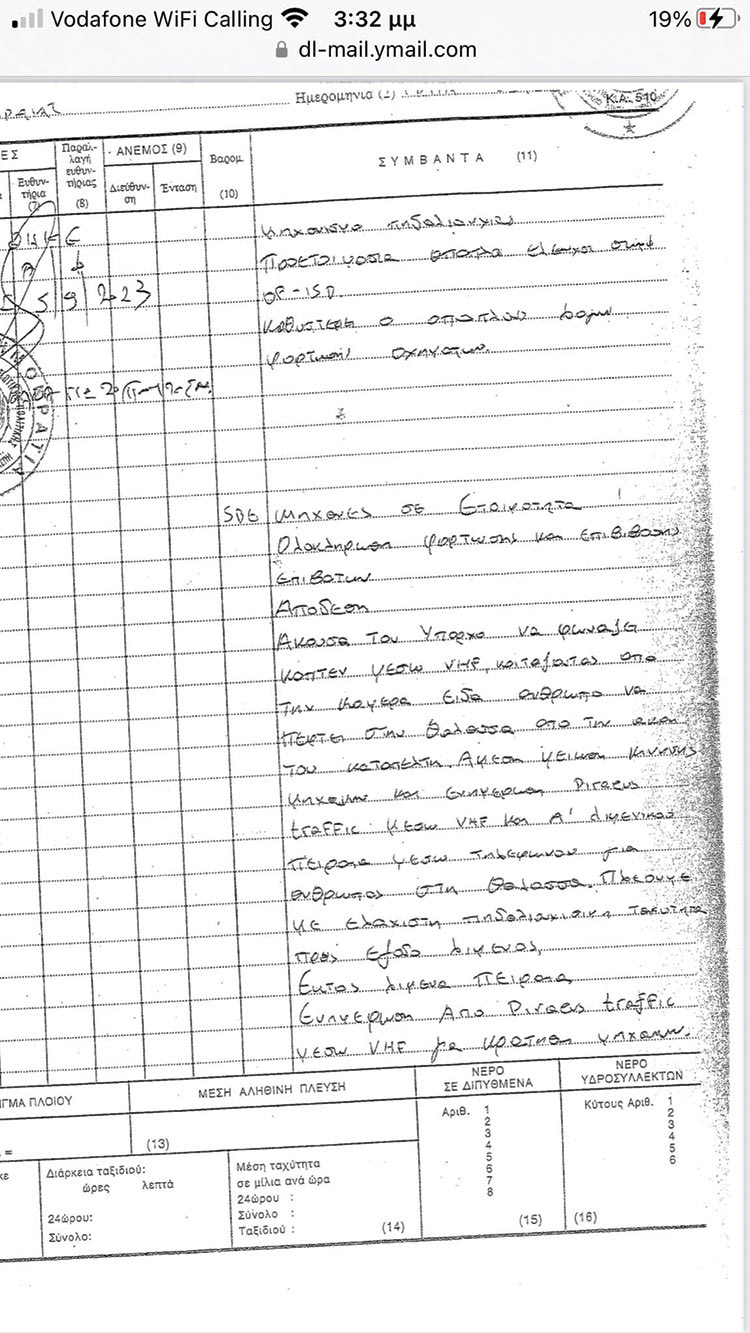 Vodafone WiFi Calling 3:32 μμ 19%
dl-mail.ymail.com
Ημερομηνία
Κ.Α. 510
ΕΣ
Ευθυν-
τήρια
(7)
Παραλ-
λαγή
ευθυν-
τήριας
(8)
ΑΝΕΜΟΣ (9)
Διεύθυν-
ση
Ένταση
Βαρομ.
(10)
ΣΥΜΒΑΝΤΑ (11)
5 9 2023
Προετοιμασία
OP-ISD
Καθυστερει ο αποπλους λογω
φορτωσης οχηματων.
SBE Μηχανες σε Ετοιμοτητα
Ολοκληρωση φορτωσης και επιβιβασης
επιβατων
Αποδεση
Ακουσα τον Υπαρχο να φωναζε
καπτεν μεσω VHF, κοιταζοντας απο
την καμερα ειδα ανθρωπο να
πεφτει στην θαλασσα απο την ακρη
του καταπελτη. Αμεση μειωση κινησης
μηχανων και ενημερωση Piraeus
traffic μεσω VHF και Α' λιμενικου
Πειραια μεσω τηλεφωνου για
ανθρωπος στη θαλασσα. Πλεουμε
με ελαχιστη πηδαλιουχισιμη ταχυτητα
προς εξοδο λιμενος,
Εκτος λιμενα Πειραια
Ενημερωση Απο Piraeus traffic
μεσω VHF για κρατηση μηχανων.
ΙΓΜΑ ΠΛΟΙΟΥ
ΜΕΣΗ ΑΛΗΘΙΝΗ ΠΛΕΥΣΗ
(13)
ΝΕΡΟ
ΣΕ ΔΙΠΥΘΜΕΝΑ
Αριθ. 1
2
3
4
5
6
7
8
(15)
ΝΕΡΟ
ΥΔΡΟΣΥΛΛΕΚΤΩΝ
Κύτους Αριθ. 1
2
3
4
5
6
(16)
Διάρκεια ταξιδιού:
ώρες λεπτά
24ώρου:
Σύνολο:
Μέση ταχύτητα
σε μίλια ανά ώρα
24ώρου :
Σύνολο :
Ταξιδιού : (14)